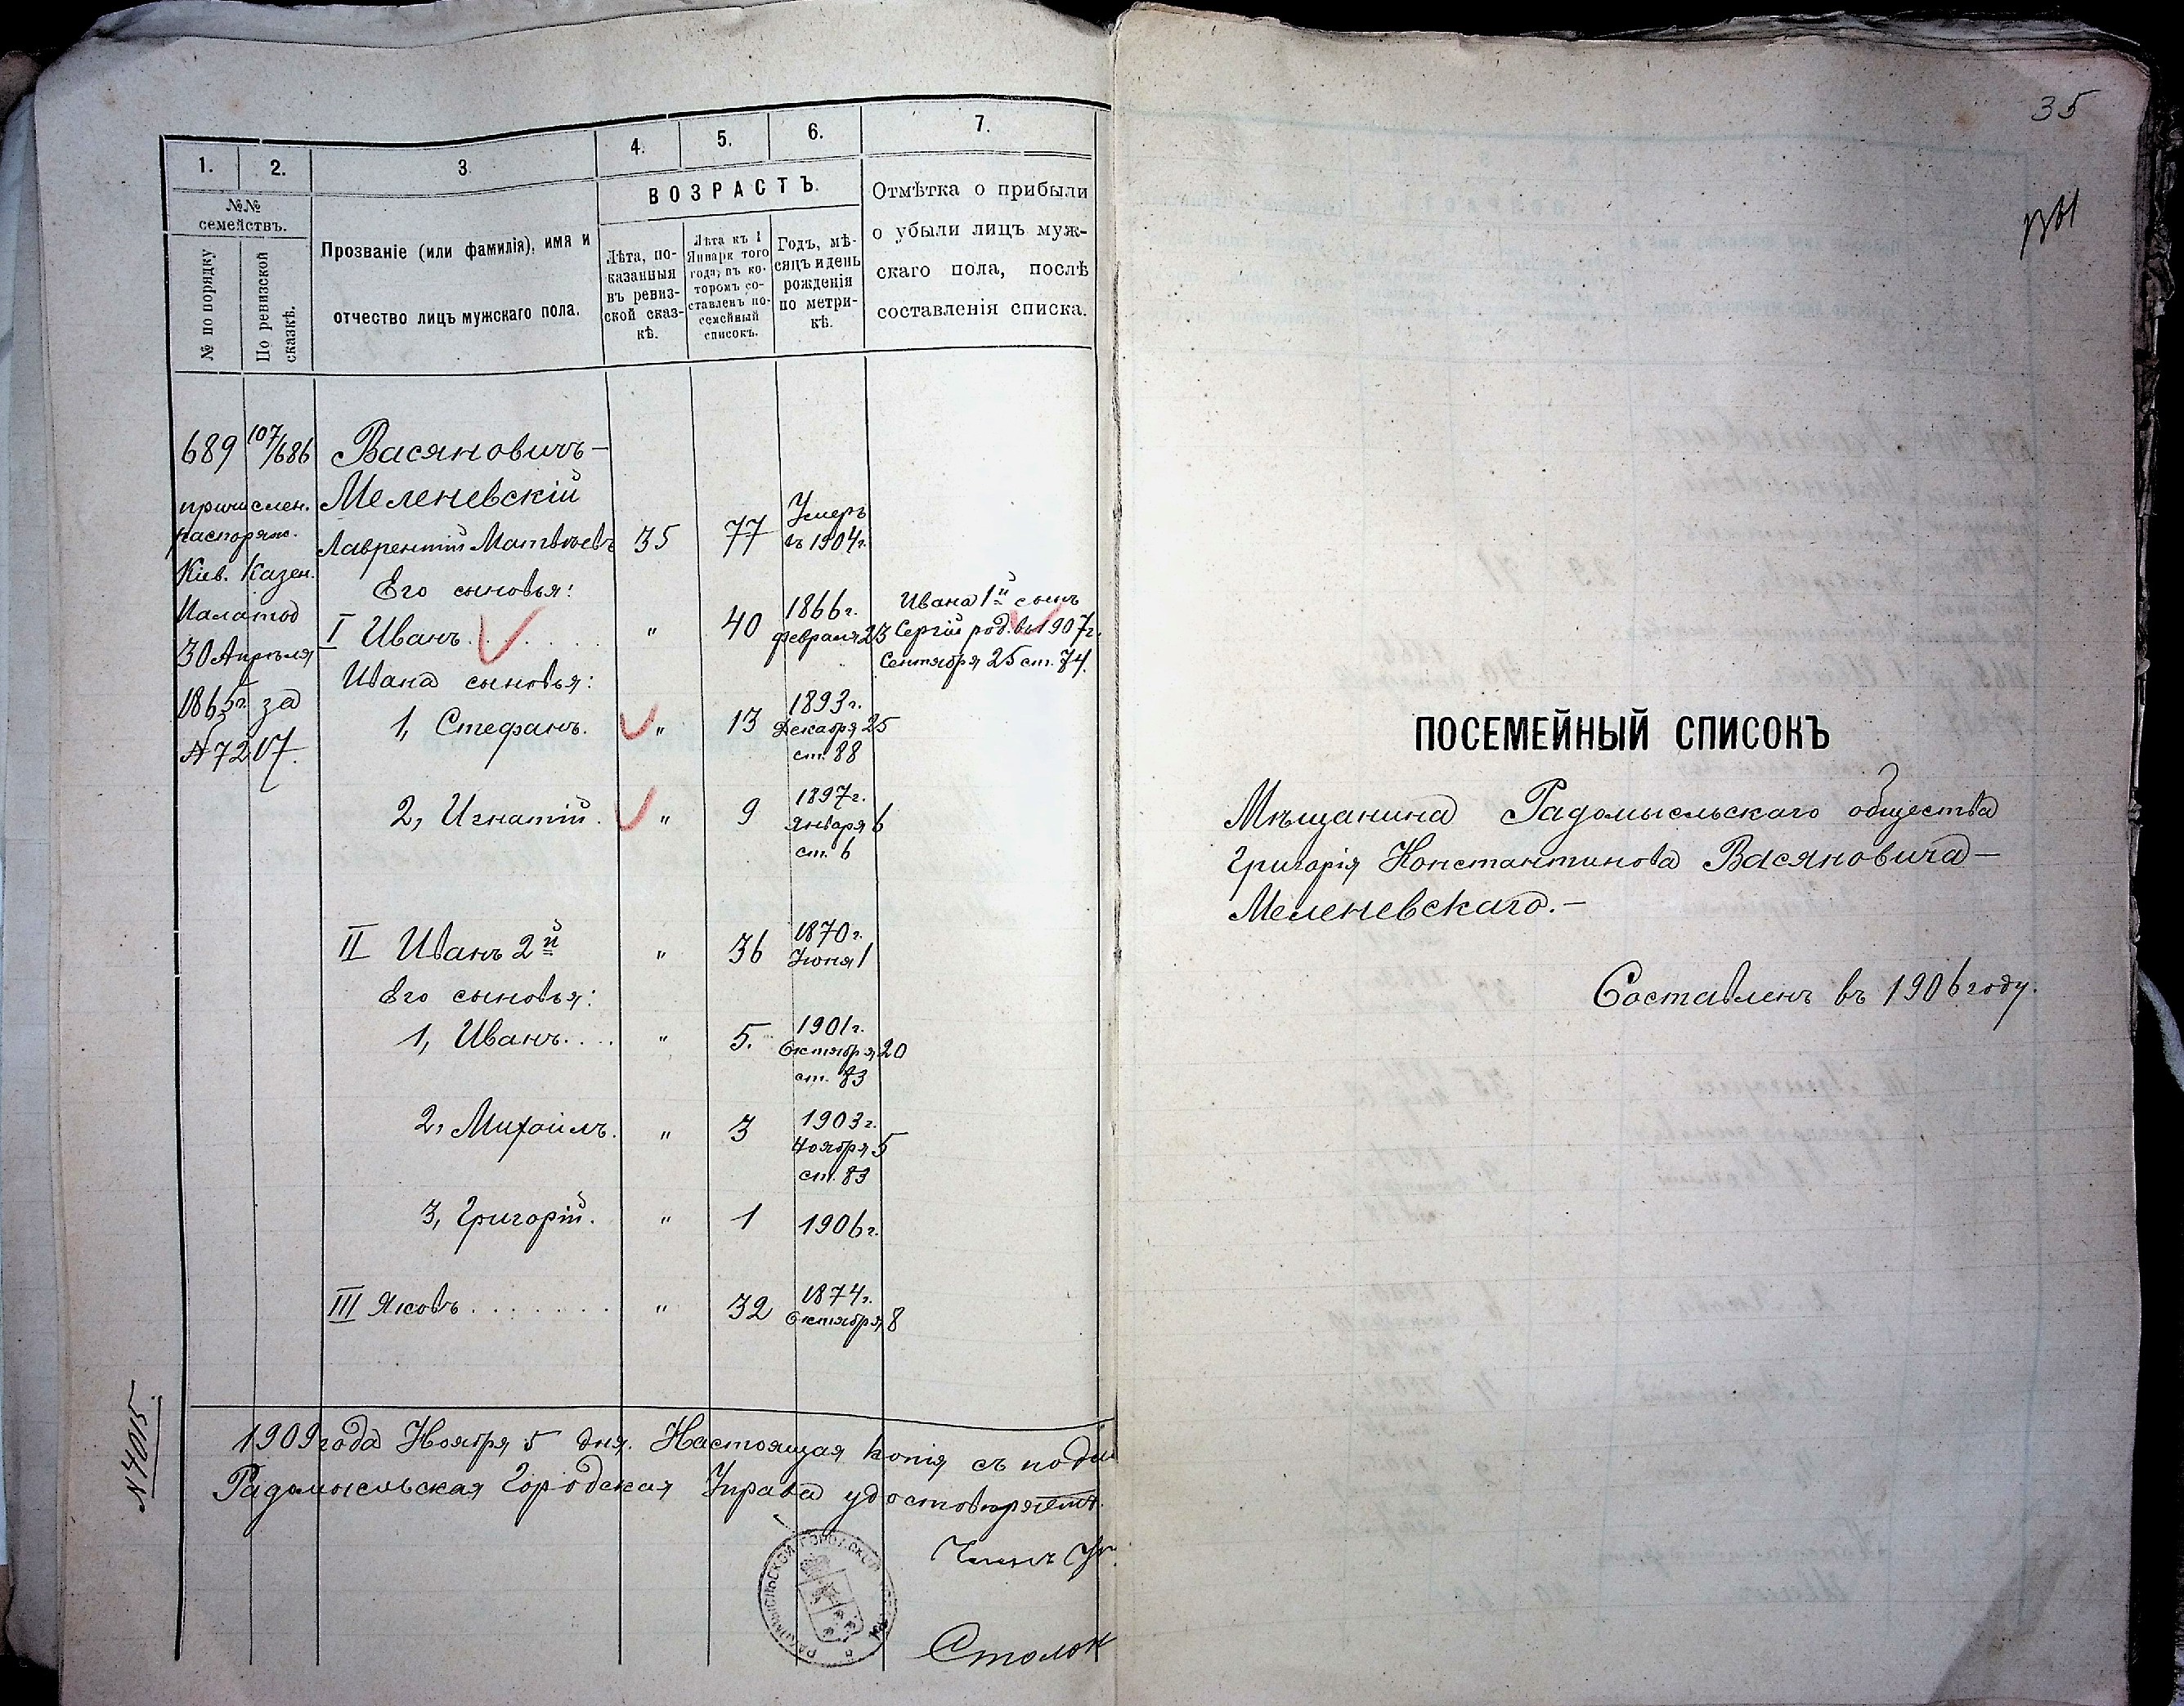 1.
2.
3.
4.
5.
6.
7.
№№
семействъ.
№ по порядку
По ревизской
сказкѣ.
Прозваніе (или фамилія), имя и
отчество лицъ мужскаго пола.
ВОЗРАСТЪ.
Лѣта, по-
казанныя
въ ревиз-
ской сказ-
кѣ.
Лѣта къ 1
Января того
года, въ ко-
торомъ со-
ставленъ по-
семейный
списокъ.
Годъ, мѣ-
сяцъ и день
рожденія
по метри-
кѣ.
Отмѣтка о прибыли
о убыли лицъ муж-
скаго пола, послѣ
составленія списка.
689
107/686
причислен.
распоряж.
Кіев. Казен.
Палатой
30 Апрѣля
1865г. за
№ 7207.
Васяновичъ-
Меленевскій
Лаврентій Матвѣевъ 35 77 Умеръ
въ 1904г.
Его сыновья:
I Иванъ. . . . . " 40 1866г.
февраля 23
Ивана 1й сынъ
Сергій род. въ 1907г.
Сентября 25 ст. 74.
Ивана сыновья:
1, Стефанъ. " 13 1893г.
Декабря 25
ст. 88
2, Игнатій. " 9 1897г.
Января 6
ст. 6
II Иванъ 2й " 36 1870г.
Іюня 1
Его сыновья:
1, Иванъ. . . . " 5. 1901г.
Октября 20
ст. 83
2, Михаилъ. " 3 1903г.
Ноября 5
ст. 83
3, Григорій. " 1 1906г.
III Яковъ . . . . . . . " 32 1874г.
Октября 8
№ 4015.
1909 года Ноября 5 дня. Настоящая копія съ подл
Радомысльская Городская Управа удостовѣряетъ.
Членъ Уп.
Столон
35
ПОСЕМЕЙНЫЙ СПИСОКЪ
Мѣщанина Радомысльскаго общества
Григорія Константинова Васяновича-
Меленевскаго.-
Составленъ въ 1906 году.